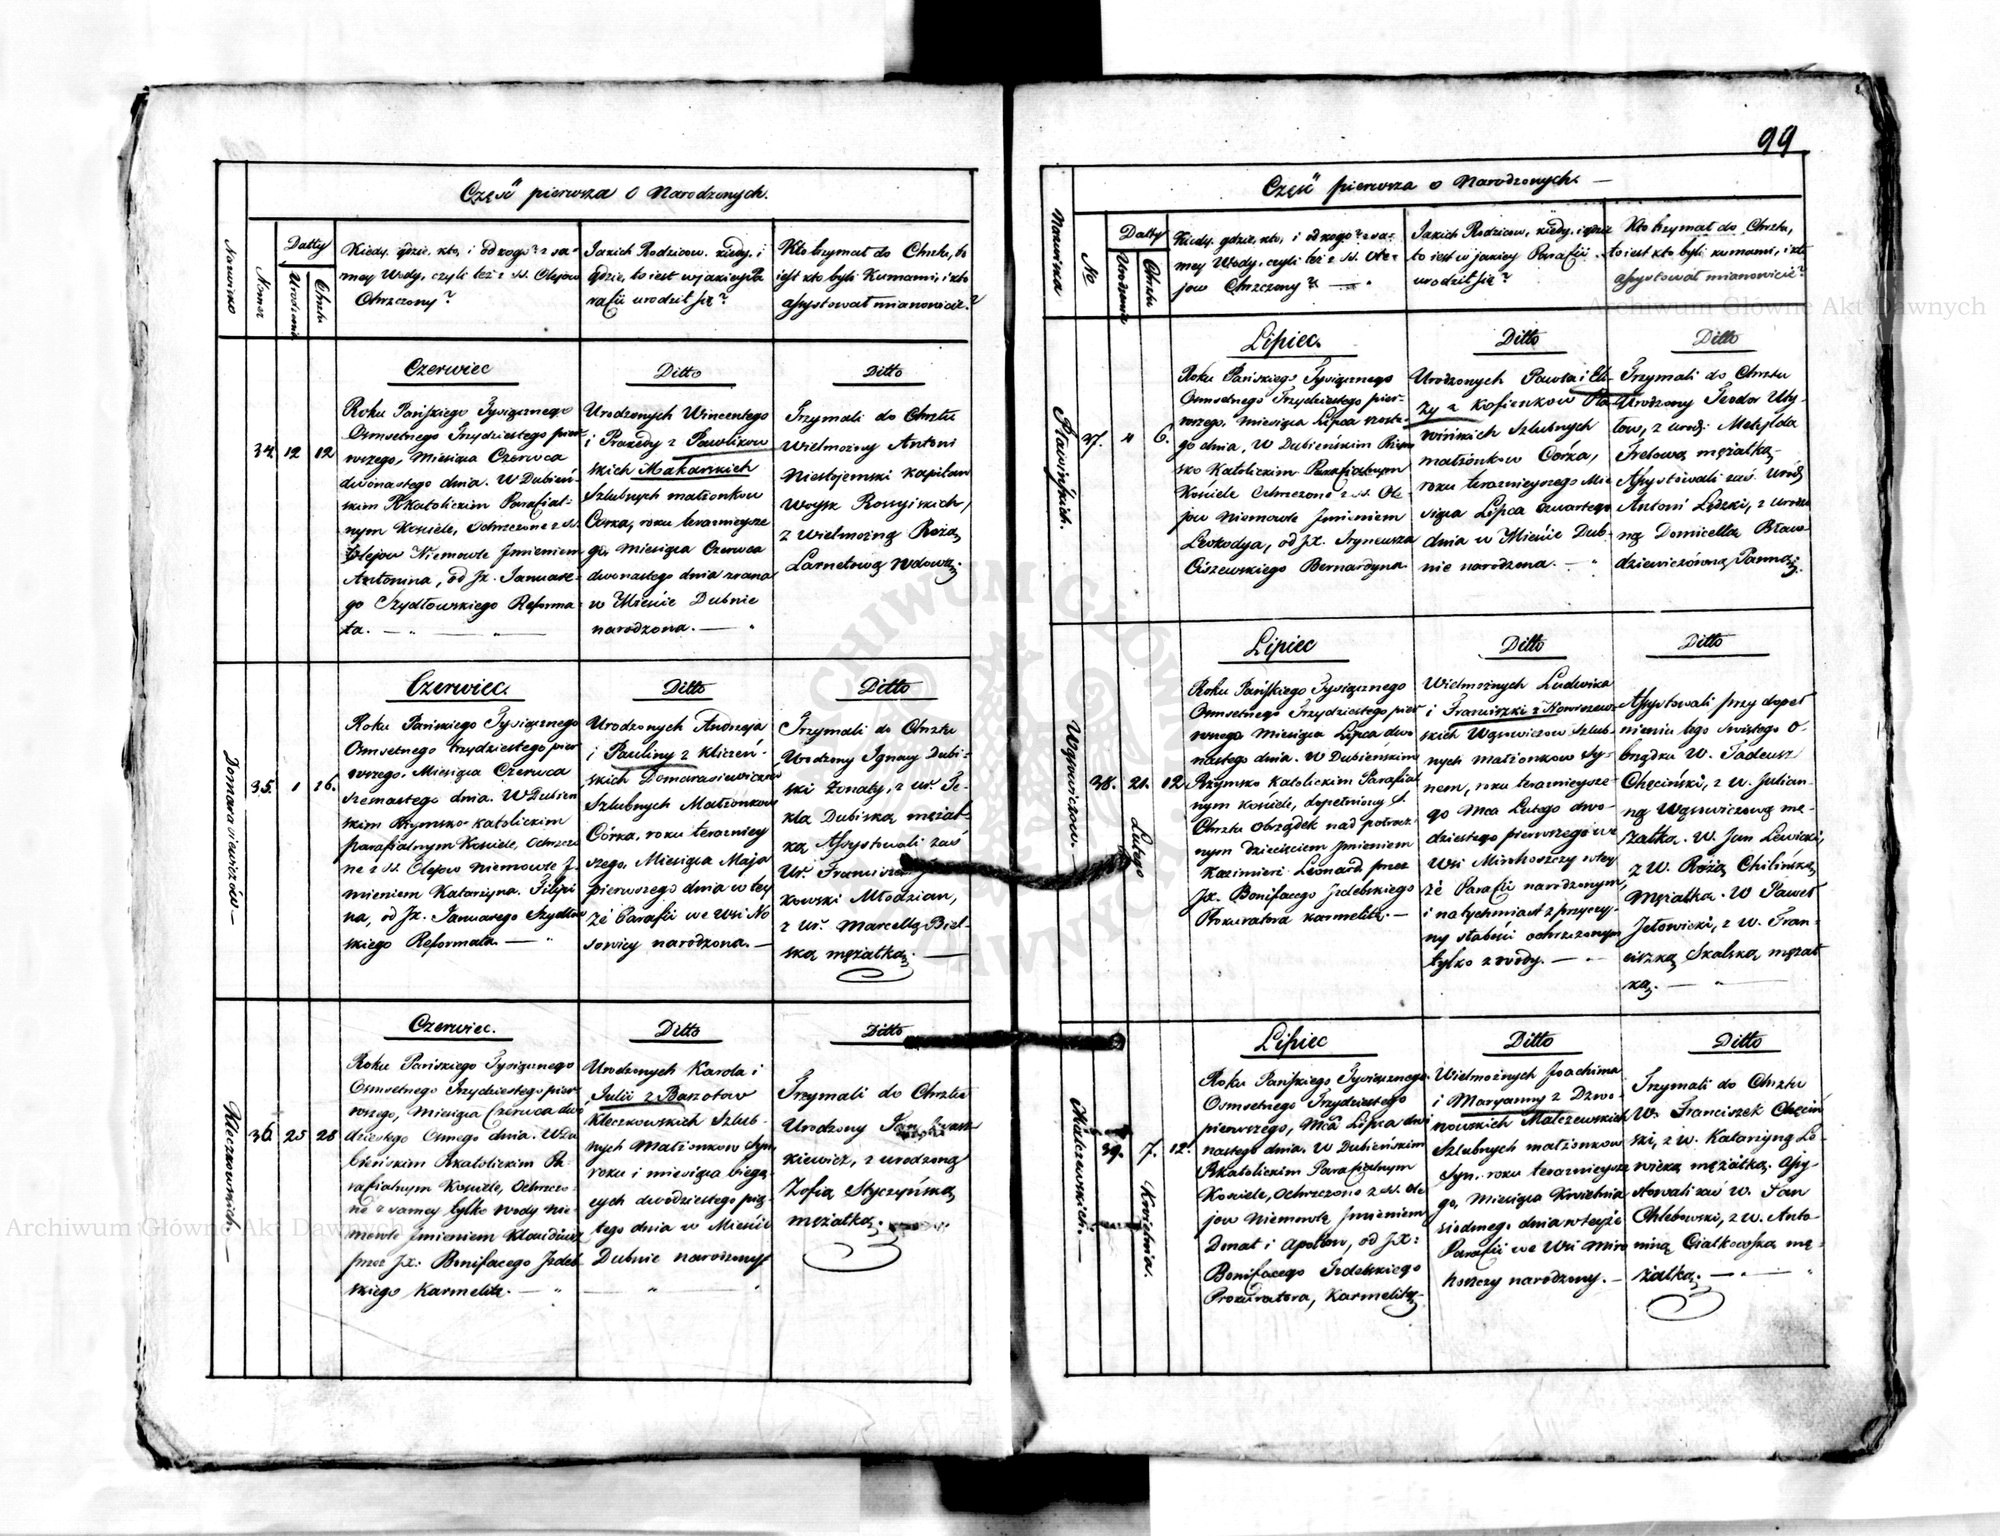 99
Część pierwsza o Narodzonych.
Nazwisko
Numer
Datty
Urodzenia
Chrztu
Kiedy, gdzie, kto, i od kogo? z sa-
mey Wody, czyli też z SS. Olejów
Ochrzczony?
Jakich Rodziców, kiedy, i
gdzie, to iest w jakiey Pa
rafii urodził się?
Kto trzymał do Chrztu, to
iest kto byli Kumami, i kto
assystował mianowicie?
34
12
12
Czerwiec
Roku Pańskiego Tysiącznego
Osmsetnego Trzydziestego pier-
wszego, Miesiąca Czerwca
dwónastego dnia. W Dubień-
skim RKatolickim Parafial-
nym Kościele, Ochrzczone z SS.
Olejow Niemowle Jmieniem
Antonina, od Jx. Januare-
go Szydłowskiego Reforma-
ta.
Ditto
Urodzonych Wincentego
i Praxedy z Pawlikow
skich Makarskich
Szlubnych małżonkow
Corka, roku teraznieysze
go, Miesiąca Czerwca
dwónastego dnia zrana
w Mieście Dubnie
narodzona.
Ditto
Trzymali do Chrztu
Wielmożny Antoni
Niestojemski Kapitan
Woysk Rossyiskich,
z Wielmożną Rożą
Larnetową Wdową.
Domarasiewiczów
35.
1
16.
Czerwiec.
Roku Pańskiego Tysiącznego
Osmsetnego trzydziestego pier
wszego, Miesiąca Czerwca
szesnastego dnia. W Dubien
skim Rzymsko-katolickim
parafialnym Kościele, Ochrzczo
ne z SS. Olejow Niemowle J-
mieniem Katarzyna Filipi
na, od Jx. Januarego Szydłow
skiego Reformata.
Ditto
Urodzonych Andrzeja
i Pauliny z Kliczeń-
skich Domarasiewiczow
Szlubnych Małżonkow
Córka, roku terazniey
szego, Miesiąca Maja
pierwszego dnia w tey
że Parafii we Wsi No
sowicy narodzona.
Ditto
Trzymali do Chrztu
Urodzony Ignacy Dubi-
ski Żonaty, z Ur. Te-
kla Dubiską mężat-
ką Assystowali zaś
Ur. Franciszek
kowski Młodzian,
z Ur. Marcellą Biel-
ską mężatką.
Kleczkowskich.
36
25
28
Czerwiec.
Roku Pańskiego Tysiącznego
Osmsetnego Trzydziestego pier-
wszego, Miesiąca Czerwca dwó
dziestego Osmego dnia. W Du
bieńskim RKatolickim Pa
rafialnym Kościele, Ochrzczo-
ne z samey tylko wody nie-
mowle Jmieniem Klaudiusz
przez Jx. Bonifacego Jzdeb-
skiego Karmelitę.
Ditto
Urodzonych Karola i
Julii z Baszotow
Kleczkowskich Szlub-
nych Małżonkow Syn
roku i miesiąca bieżą
cych dwódziestego pią-
tego dnia w Mieście
Dubnie narodzony
Ditto
Trzymali do Chrztu
Urodzony Jan
kiewicz, z urodzoną
Zofią Styczyńską
mężatką.
Część pierwsza o Narodzonych.
Nazwiska
No
Datty
Urodzenia
Chrztu
Kiedy, gdzie, kto, i od kogo? z sa-
mey Wody, czyli też z SS. Ole-
jow Chrzczony?
Jakich Rodzicow, kiedy, i gdzie
to iest w jakiey Parafii
urodził się?
Kto trzymał do Chrztu,
to iest kto byli kumami, i kto
assystował mianowicie?
Pławińskich.
37.
4
6.
Lipiec.
Roku Pańskiego Tysiącznego
Osmsetnego Trzydziestego pier-
wszego, miesiąca Lipca szoste-
go dnia, W Dubieńskim Rzym
sko Katolickim Parafialnym
Kościele Ochrzczono z SS. Ole-
jow Niemowle Jmieniem
Leokadya, od Jx. Ireneusza
Ciszewskiego Bernardyna
Ditto
Urodzonych Pawła i Eli-
zy z Kofienkow Pła
wińskich Szlubnych
małżonkow Córka,
roku teraznieyszego Mie
siąca Lipca czwartego
dnia w Mieście Dub-
nie narodzona.
Ditto
Trzymali do Chrztu
Urodzony Teodor Uty-
tow, z urodz. Matyldą
Fretową mężatką.
Assystowali zaś Urodz
Antoni Lędzki, z urodzo
ną Domicellą Bława
dziewiczówną Panną.
Wąsowiczow.
38.
21.
Lutego
12
Lipiec
Roku Pańskiego Tysiącznego
Osmsetnego Trzydziestego pier
wszego Miesiąca Lipca dwó
nastego dnia. W Dubieńskim
Rzymsko Katolickim Parafial
nym Kościele, dopełniony S.
Chrztu Obrządek nad potrze
nym dziecięciem Jmieniem
Kazimierz Leonard, przez
Jx. Bonifacego Jzdebskiego
Prokuratora Karmelitę.
Ditto
Wielmożnych Ludwika
i Franciszki z Nowoszew
skich Wąsowiczow Szlub-
nych małżonkow Sy-
nem, roku teraznieysze-
go Mca Lutego dwó-
dziestego pierwszego we
Wsi Mirohoszczy w tey
że Parafii narodzonym,
i natychmiast z przyczy-
ny słabości ochrzczonym
tylko z wody.
Ditto
Assystowali przy dopeł
nieniu tego Swiętego O-
brządku W. Tadeusz
Chęciński, z W. Julian-
ną Wąsowiczową mę-
żatką. W. Jan Lewicki,
z W. Rożą Chilińską
Mężatką. W Paweł
Jełowicki, z W. Fran-
ciszką Skalską mężat
ką.
Malczewskich.
39.
7.
Kwietnia.
12.
Lipiec
Roku Pańskiego Tysiącznego
Osmsetnego Trzydziestego
pierwszego, Mca Lipca dwó
nastego dnia. W Dubieńskim
RKatolickim Parafialnym
Kościele, ochrzczono z SS. Ole
jow Niemowle Jmieniem
Donat i Apollon, od Jx:
Bonifacego Jzdebskiego
Prokuratora, Karmelity.
Ditto
Wielmożnych Joachima
i Maryanny z Dzwo-
nowskich Malczewskich
Szlubnych małżonkow
Syn, roku teraznieysze
go, Miesiąca Kwietnia
siodmego dnia w teyże
Parafii we Wsi Miro
hoszczy narodzony.
Ditto
Trzymali do Chrztu
W. Franciszek Chęciń
ski, z W. Katarzyną Lo-
wicką mężatką. Assy-
stowali zaś W. Jan
Chlebowski, z W. Anto-
niną Ciałkowską mę-
żatką.
Archiwum Główne Akt Dawnych
Archiwum Główne Akt Dawnych
ARCHIWUM GŁÓWNE AKT DAWNYCH